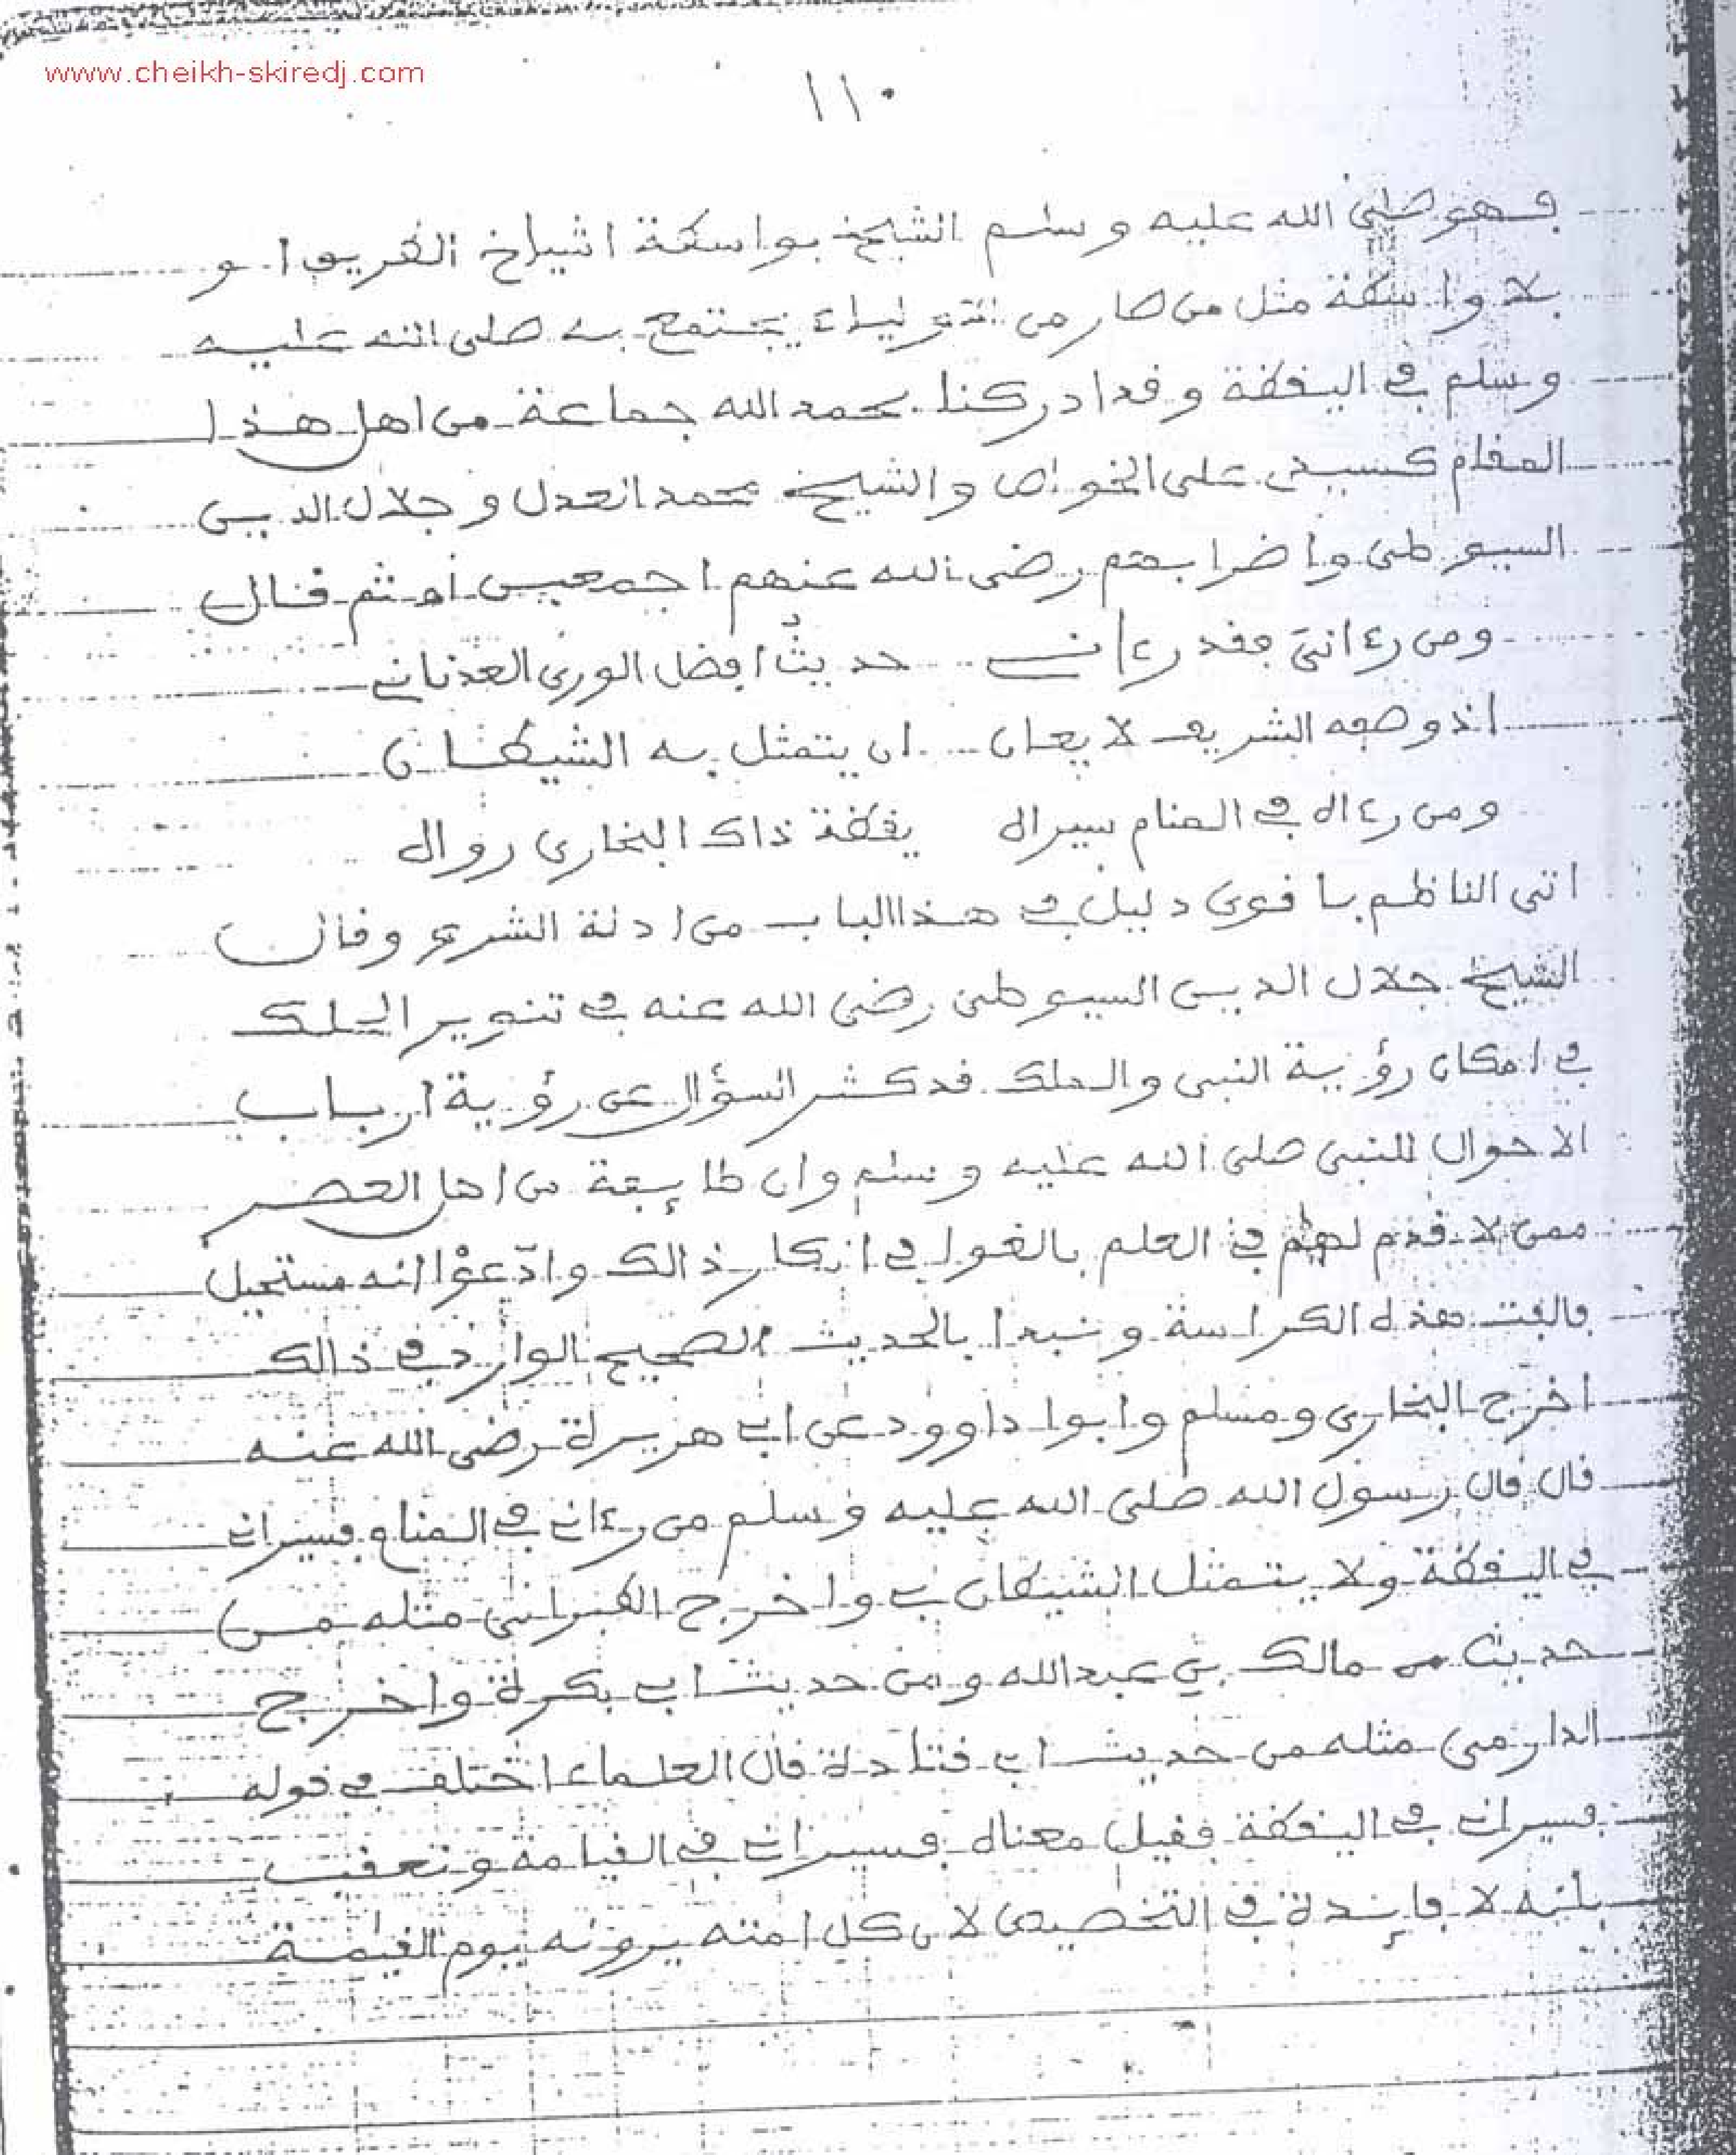 www.cheikh-skiredj.com
١١٠
فهو صلى الله عليه وسلم الشيخ بواسطة اشياخ الطريق او
بلا واسطة مثل من صار من الاولياء يجتمع به صلى الله عليه
وسلم في اليقظة وقد ادركنا بحمد الله جماعة من اهل هذا
المقام كسيدي على الخواص والشيخ محمد العدل وجلال الدين
السيوطى واضرابهم رضى الله عنهم اجمعين اهـ ثم قال
ومن رءانى فقد رءانى حديث افضل الورى العدنانى
اذ وصفه الشريف لا يعان ان يتمثل به الشيطان
ومن رءاه في المنام سيراه يقظة ذاك البخارى رواه
اتى الناظم باقوى دليل في هذا الباب من ادلة الشرع وقال
الشيخ جلال الدين السيوطى رضى الله عنه في تنوير الحلك
في امكان رؤية النبى والملك قد كثر السؤال عن رؤية ارباب
الاحوال للنبى صلى الله عليه وسلم وان طايفة من اهل العصر
ممن لا قدم لهم في العلم بالغوا في انكار ذالك وادّعوْا انه مستحيل
فالفت هذه الكراسة ونبدا بالحديث الصحيح الوارد في ذالك
اخرج البخارى ومسلم وابوا داوود عن ابى هريرة رضى الله عنه
قال قال رسول الله صلى الله عليه وسلم من رءانى في المنام فسيرانى
في اليقظة ولا يتمثل الشيطان بى واخرج الطبرانى مثله من
حديث مالك بن عبد الله ومن حديث ابى بكرة واخرج
الدارمى مثله من حديث ابى قتادة قال العلماء اختلف في قوله
فسيرانى في اليقظة فقيل معناه فسيرانى في القيامة وتعقب
بانه لا فايدة في التخصيص لان كل امته يرونه يوم القيمة